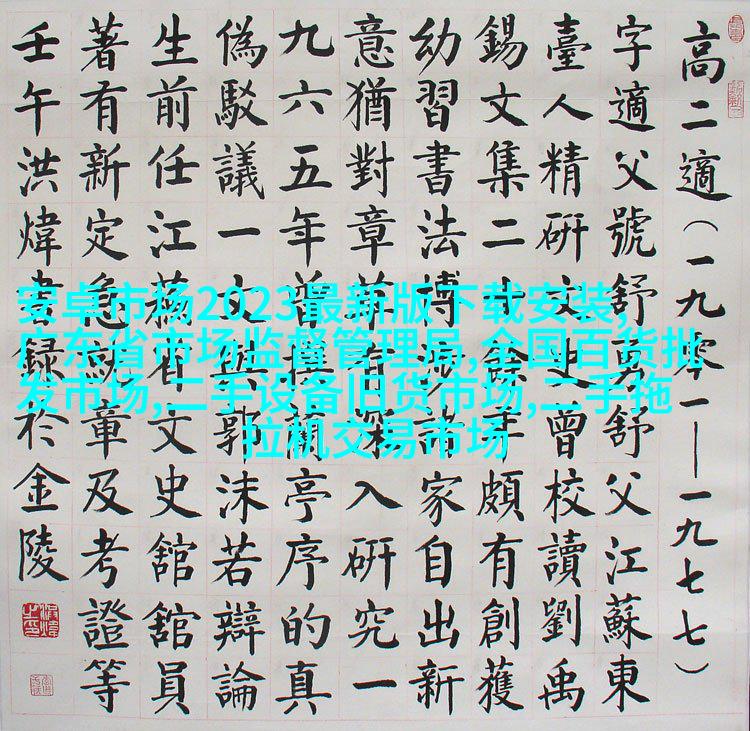 高二適（一九零一—一九七七）
字適父號舒舅舒父江蘇東
臺人精研文史曾校讀劉禹
錫文集二十餘年頗有創獲
幼習書法博涉諸家自出新
意猶對章草有深入研究一
九六五年曾撰蘭亭序的真
偽駁議一文與郭沫若辯論
生前任江蘇省文史舘舘員
著有新定急就章及考證等
壬午洪煒書録於金陵
安卓市场2023最新版下载安装,
广东省市场监督管理局,全国百货批
发市场,二手设备旧货市场,二手拖
拉机交易市场